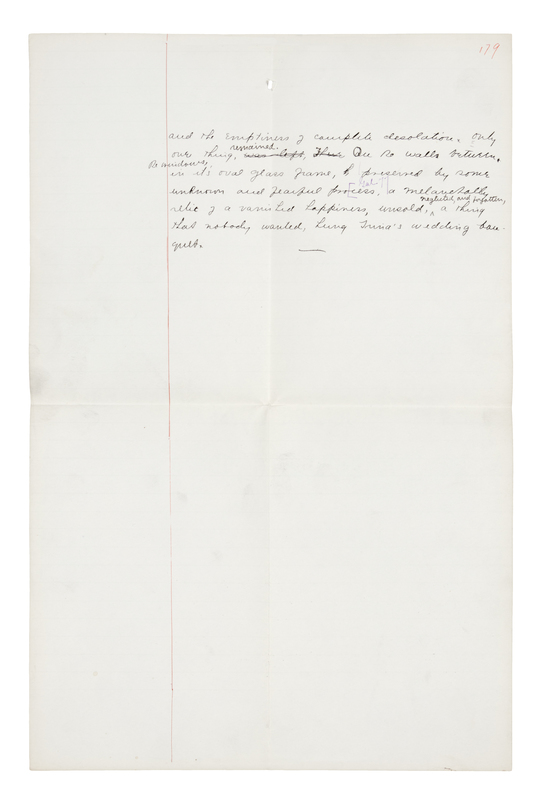 179
and the emptiness of complete desolation. Only
one thing, remained. was left, There On the walls between
the windows,
in its oval glass frame, preserved by some
unknown and fearful process, a melancholy
neglected, and forgotten,
relic of a vanished happiness, unsold, a thing
that nobody wanted, hung Trina's wedding bou-
quet.